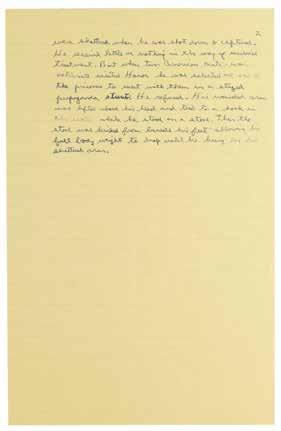 2
was shattered when he was shot down & captured.
He received little or nothing in the way of medical
treatment. But when two American anti-war
activists visited Hanoi he was selected as one of
the prisoners to meet with them in a staged
propaganda stunt. He refused. His wounded arm
was lifted above his head and tied to a hook in
the while he stood on a stool. Then the
stool was kicked from beneath his feet allowing his
full body weight to drop until he hung by his
shattered arm.